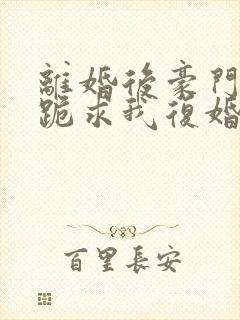 離婚後豪門
跪求我復婚
百里長安